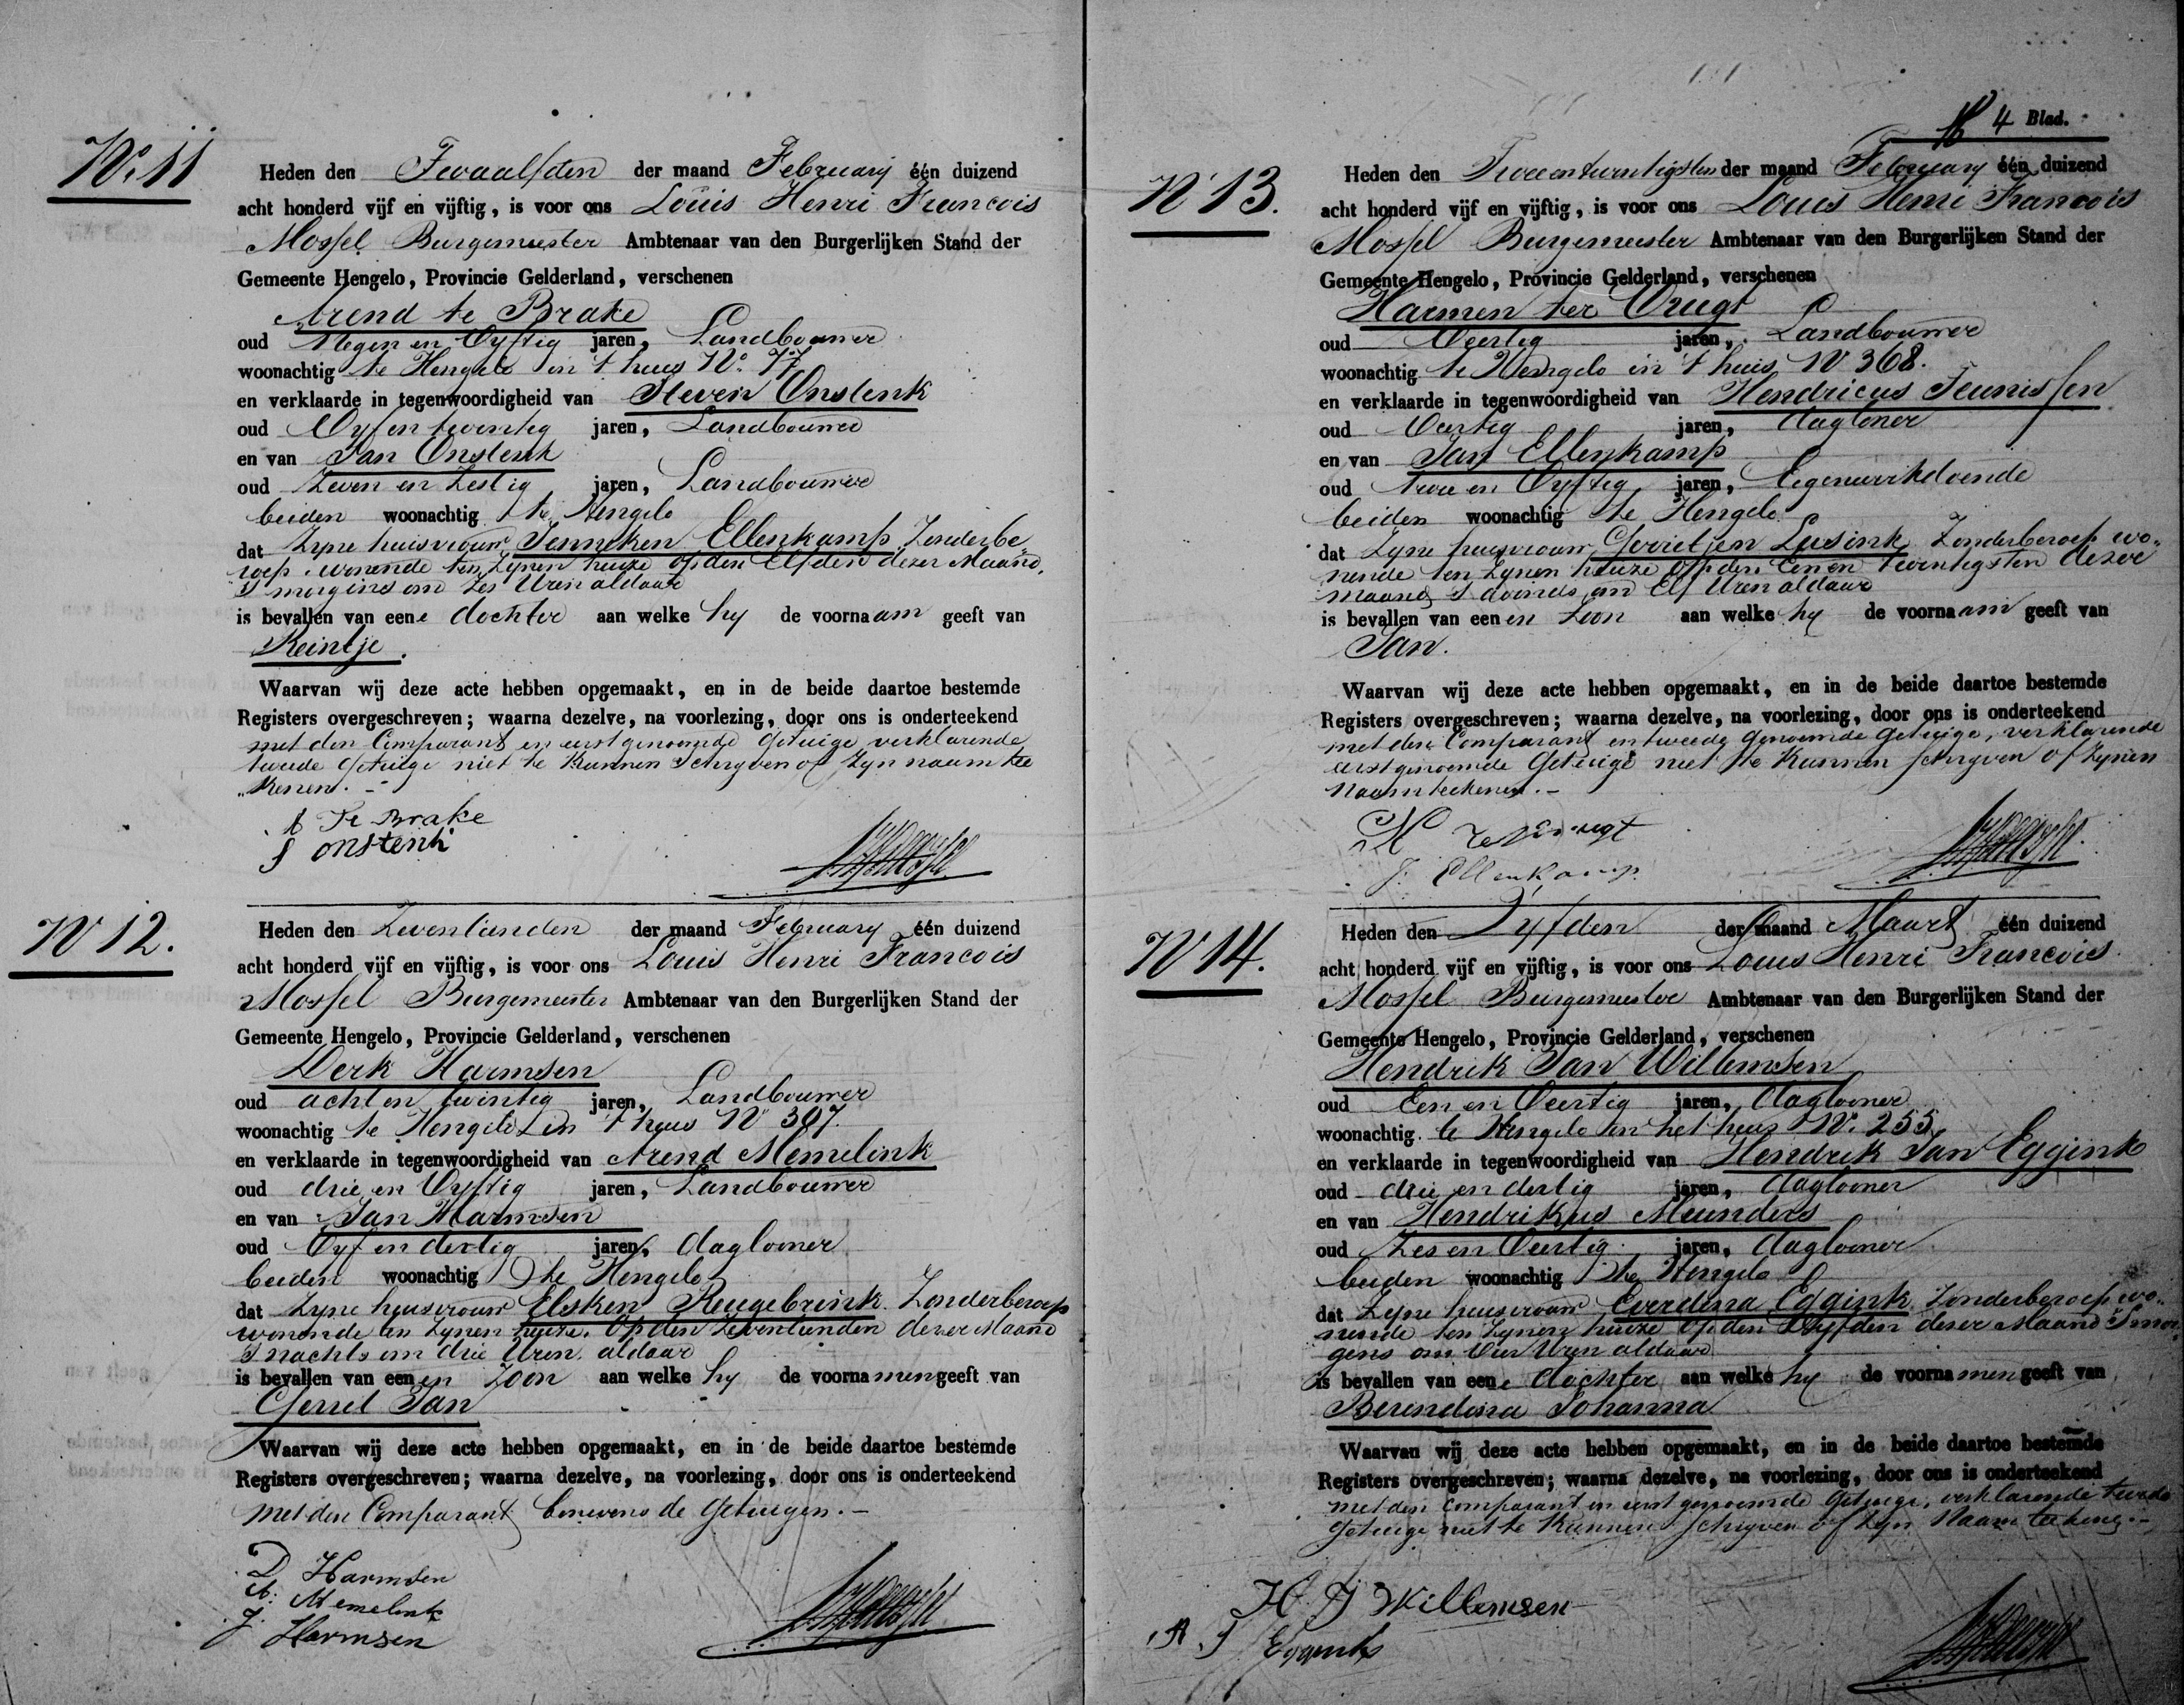 No. 11
Heden den Twaalfden der maand February één duizend
acht honderd vijf en vijftig, is voor ons Louis Henri Francois
Mossel Burgemeester Ambtenaar van den Burgerlijken Stand der
Gemeente Hengelo, Provincie Gelderland, verschenen
Arend te Brake
oud Negen en Vyftig jaren, Landbouwer
woonachtig te Hengelo in 't huis No. 77
en verklaarde in tegenwoordigheid van Steven Onstenk
oud Vyf en twintig jaren, Landbouwer
en van Jan Onstenk
oud Zeven en Zestig jaren, Landbouwer
beiden woonachtig te Hengelo
dat Zyne huisvrouw Jenneken Ellenkamp, Zonderbe-
roep, wonende ten Zynen huize op den Elfden dezer Maand,
's morgens om Zes Uren aldaar
is bevallen van eene dochter aan welke hy de voornaam geeft van
Reintje.
Waarvan wij deze acte hebben opgemaakt, en in de beide daartoe bestemde
Registers overgeschreven; waarna dezelve, na voorlezing, door ons is onderteekend
met den Comparant en eerstgenoemde Getuige verklarende
tweede Getuige niet te Kunnen Schryven of Zyn naam tee
"kenen. -
A Te Brake
S onstenk
N 12.
Heden den Zeventienden der maand February één duizend
acht honderd vijf en vijftig, is voor ons Louis Henri Francois
Mossel Burgemeester Ambtenaar van den Burgerlijken Stand der
Gemeente Hengelo, Provincie Gelderland, verschenen
Derk Harmsen
oud acht en twintig jaren, Landbouwer
woonachtig te Hengelo in 't huis No 307.
en verklaarde in tegenwoordigheid van Arend Memelink
oud drie en Vyftig jaren, Landbouwer
en van Jan Harmsen
oud Vyf en dertig jaren, dagloner
beiden woonachtig te Hengelo
dat Zyne huisvrouw Elsken Reugebrink Zonderberoep
wonende ten Zynen huize. Op den Zeventienden dezer Maand
's nachts om drie Uren aldaar
is bevallen van eenen Zoon aan welke hy de voornamen geeft van
Gerrit Jan
Waarvan wij deze acte hebben opgemaakt, en in de beide daartoe bestemde
Registers overgeschreven; waarna dezelve, na voorlezing, door ons is onderteekend
met den Comparant benevens de Getuigen. -
D Harmsen
A: Memelink
J. Harmsen
4 Blad.
N 13.
Heden den Tweeentwintigsten der maand February één duizend
acht honderd vijf en vijftig, is voor ons Louis Henri Francois
Mossel Burgemeester Ambtenaar van den Burgerlijken Stand der
Gemeente Hengelo, Provincie Gelderland, verschenen
Harmen ter Vrugt
oud Veertig jaren, Landbouwer
woonachtig te Hengelo in 't huis No 368.
en verklaarde in tegenwoordigheid van Hendricus Teunissen
oud Veertig jaren, dagloner
en van Jan Ellenkamp
oud twee en Vyftig jaren, Eigenwerkdoende
beiden woonachtig te Hengelo
dat Zyne huisvrouw Gerritjen Lusink Zonderberoep wo-
nende ten Zynen huize Op den Een en twintigsten dezer
maand 's avonds om Elf Uren aldaar
is bevallen van eenen Zoon aan welke hy de voornaam geeft van
Jan.
Waarvan wij deze acte hebben opgemaakt, en in de beide daartoe bestemde
Registers overgeschreven; waarna dezelve, na voorlezing, door ons is onderteekend
met den Comparant en tweede genoemde Getuige, verklarende
eerstgenoemde Getuige niet te Kunnen schryven of Zynen
Naam teekenen. -
J. Ellenkamp
N 14.
Heden den Vyfden der maand Maart één duizend
acht honderd vijf en vijftig, is voor ons Louis Henri Francois
Mossel Burgemeester Ambtenaar van den Burgerlijken Stand der
Gemeente Hengelo, Provincie Gelderland, verschenen
Hendrik Jan Willemsen
oud Een en Veertig jaren, dagloner
woonachtig te Hengelo in het huis No. 255.
en verklaarde in tegenwoordigheid van Hendrik Jan Eggink
oud drie en dertig jaren, dagloner
en van Hendrikus Meunders
oud Zes en Veertig jaren, dagloner
beiden woonachtig te Hengelo
dat Zyne huisvrouw Everdina Eggink Zonderberoep wo-
nende ten Zynen huize Op den Vyfden dezer Maand 's mor
gens om Vier Uren aldaar
is bevallen van eene dochter aan welke hy de voornamen geeft van
Berendina Johanna
Waarvan wij deze acte hebben opgemaakt, en in de beide daartoe bestemde
Registers overgeschreven; waarna dezelve, na voorlezing, door ons is onderteekend
met den Comparant en eerst genoemde Getuige, verklarende tweede
Getuige niet te Kunnen schryven of Zyn Naam teekenen. -
H. J Willemsen
H J Eggink